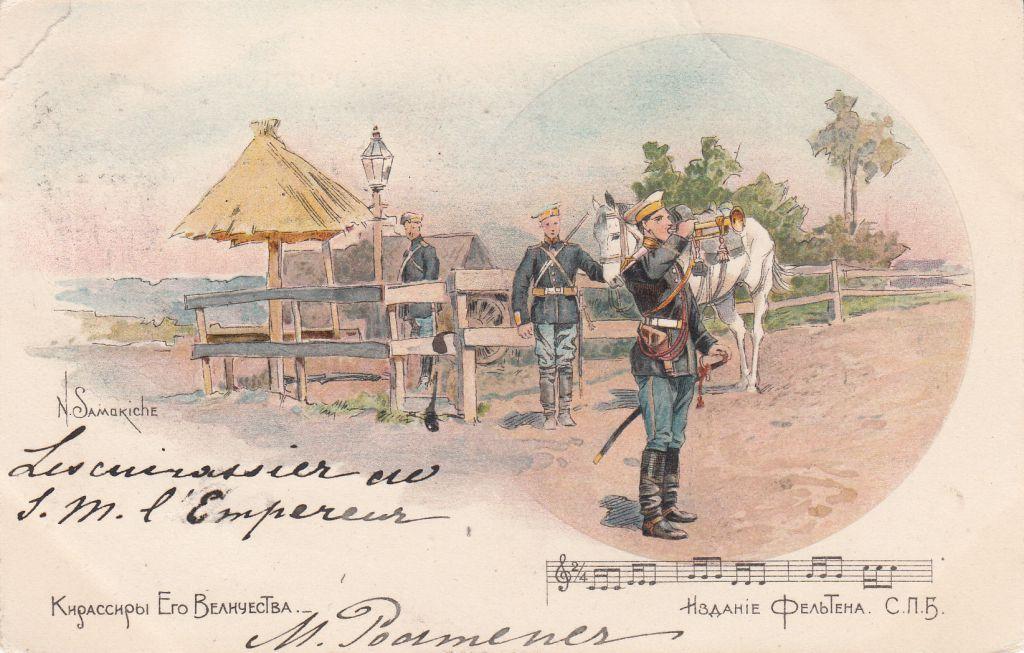 N. Samokiche
Les cuirassier de
S. M. l'Empereur
2/4
Кирассиры Его Величества._
Изданiе Фельтена. С.П.Б.
M.